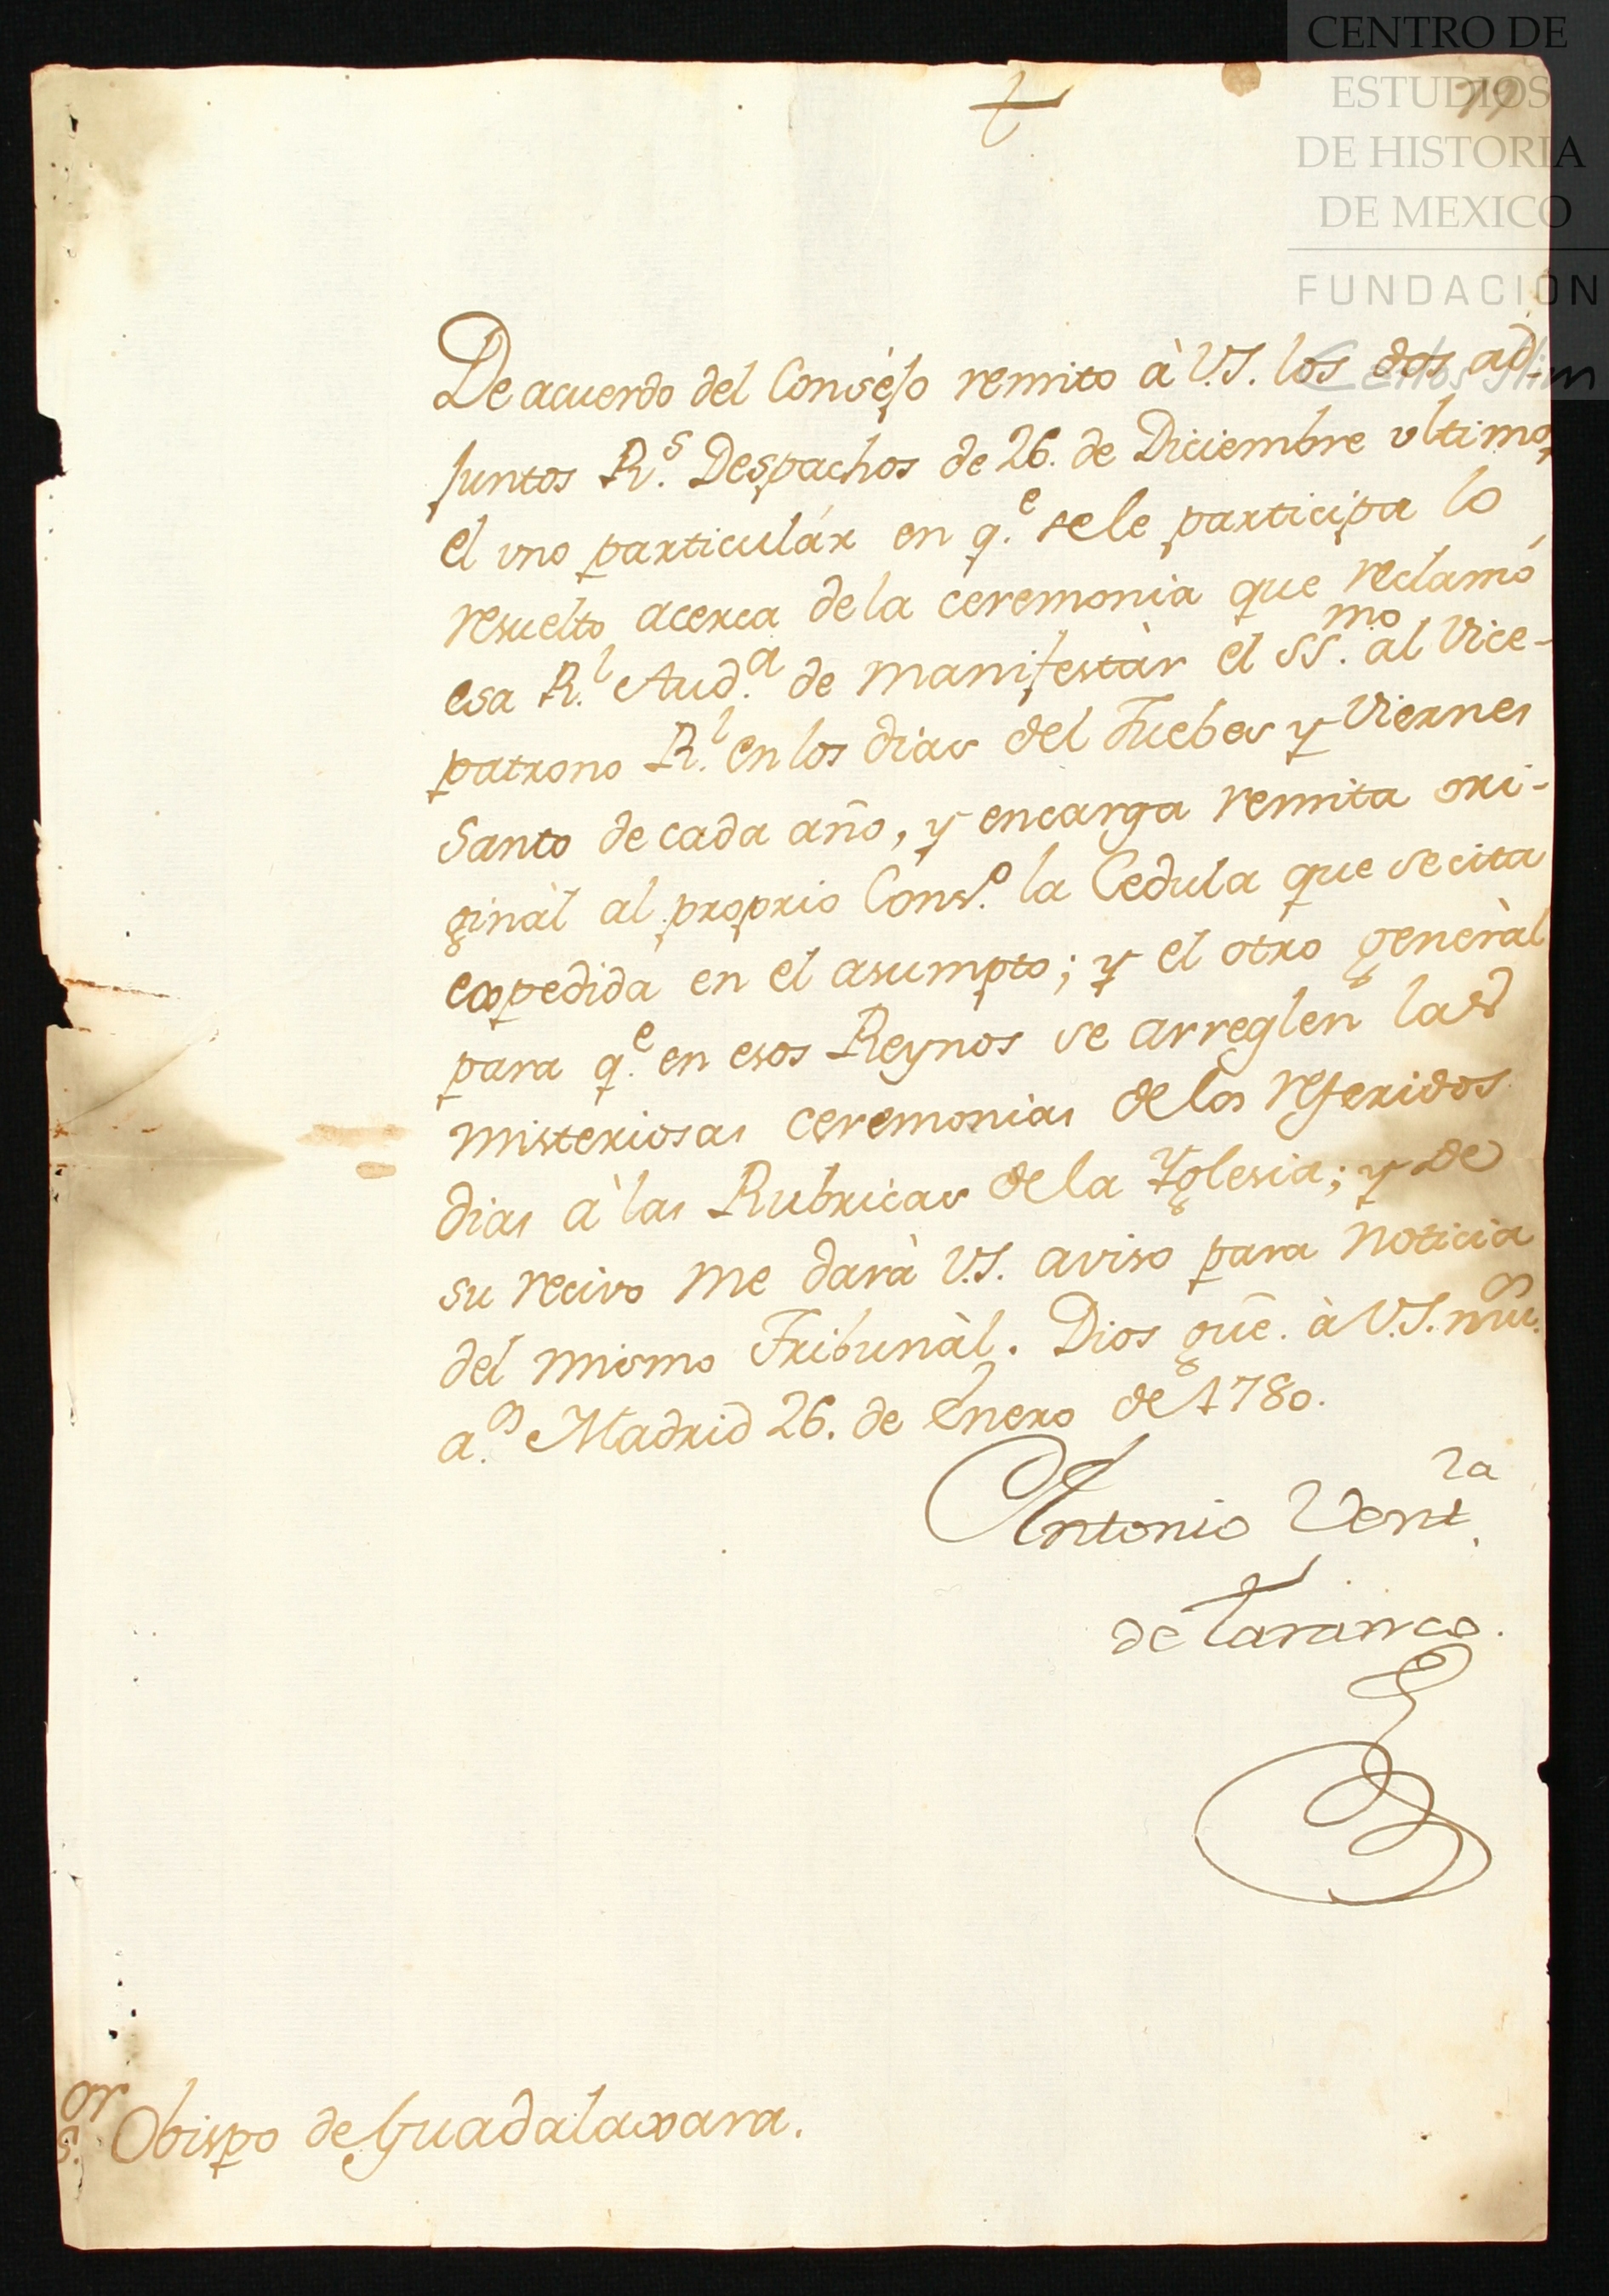 CENTRO DE
ESTUDIOS
DE HISTORIA
DE MEXICO
FUNDACIÓN
Carlos Slim
De acuerdo del Conséjo remito à V.S. los dos ad-
juntos R.s Despachos de 26. de Diciembre ultimo,
el uno particulár en q.e se le participa lo
resuelto acerca de la ceremonia que reclamó
esa R.l Aud.a de manifestàr el SS.mo al Vice-
patrono R.l en los dias del Juebes y Viernes
Santo de cada año, y encarga remita ori-
ginàl al proprio Cons.o la Cedula que se cita
expedida en el asumpto; y el otro generàl
para q.e en esos Reynos se arreglen las
misteriosas ceremonias de los referidos
dias à las Rubricas de la Yglesia; y de
su recivo me darà V.S. aviso para noticia
del mismo Tribunàl. Dios gūe. à V.S. m.s
a.s Madrid 26. de Enero de 1780.
Antonio Vent.ra
de Taranco.
S.or Obispo de Guadalaxara.